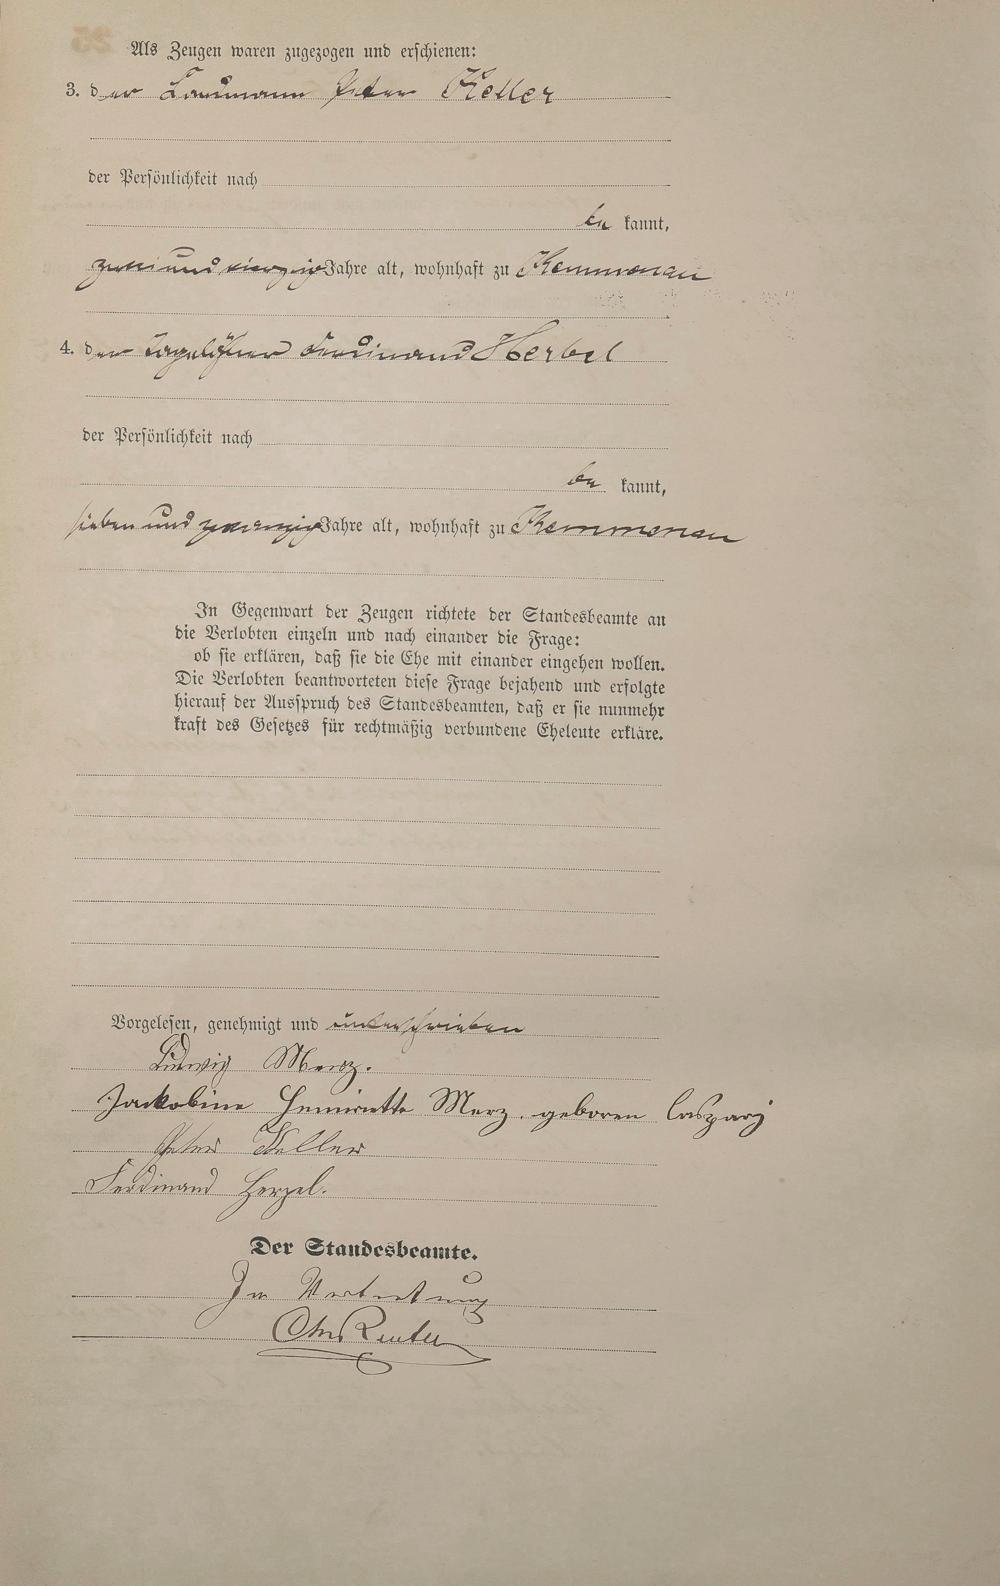 Als Zeugen waren zugezogen und erschienen:
3. der Landmann Peter Keller
der Persönlichkeit nach
be kannt,
zwei und vierzig Jahre alt, wohnhaft zu Kemmenau
4. der Tagelöhner Ferdinand Herbel
der Persönlichkeit nach
be kannt,
sieben und zwanzig Jahre alt, wohnhaft zu Kemmenau
In Gegenwart der Zeugen richtete der Standesbeamte an
die Verlobten einzeln und nach einander die Frage:
ob sie erklären, daß sie die Ehe mit einander eingehen wollen.
Die Verlobten beantworteten diese Frage bejahend und erfolgte
hierauf der Ausspruch des Standesbeamten, daß er sie nunmehr
kraft des Gesetzes für rechtmäßig verbundene Eheleute erkläre.
Vorgelesen, genehmigt und unterschrieben
Ludwig Merz.
Jackobine Henriette Merz. geboren Caspary
Peter Keller
Ferdinand
Der Standesbeamte.
In Vertretung
Reuter